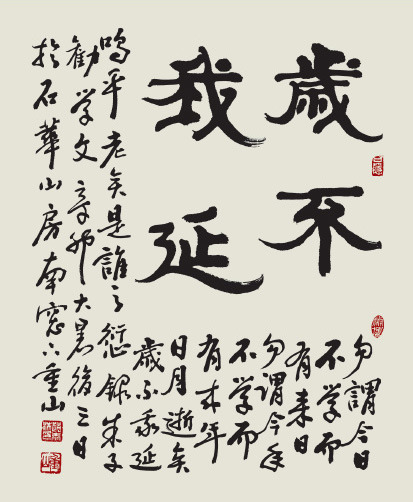 歲不
我延
勿謂今日
不学而
有来日
勿謂今年
不学而
有来年
日月逝矣
歲不我延
嗚乎老矣是誰之愆錄朱子
勸学文辛卯大暑後三日
於石華山房南窓下重山